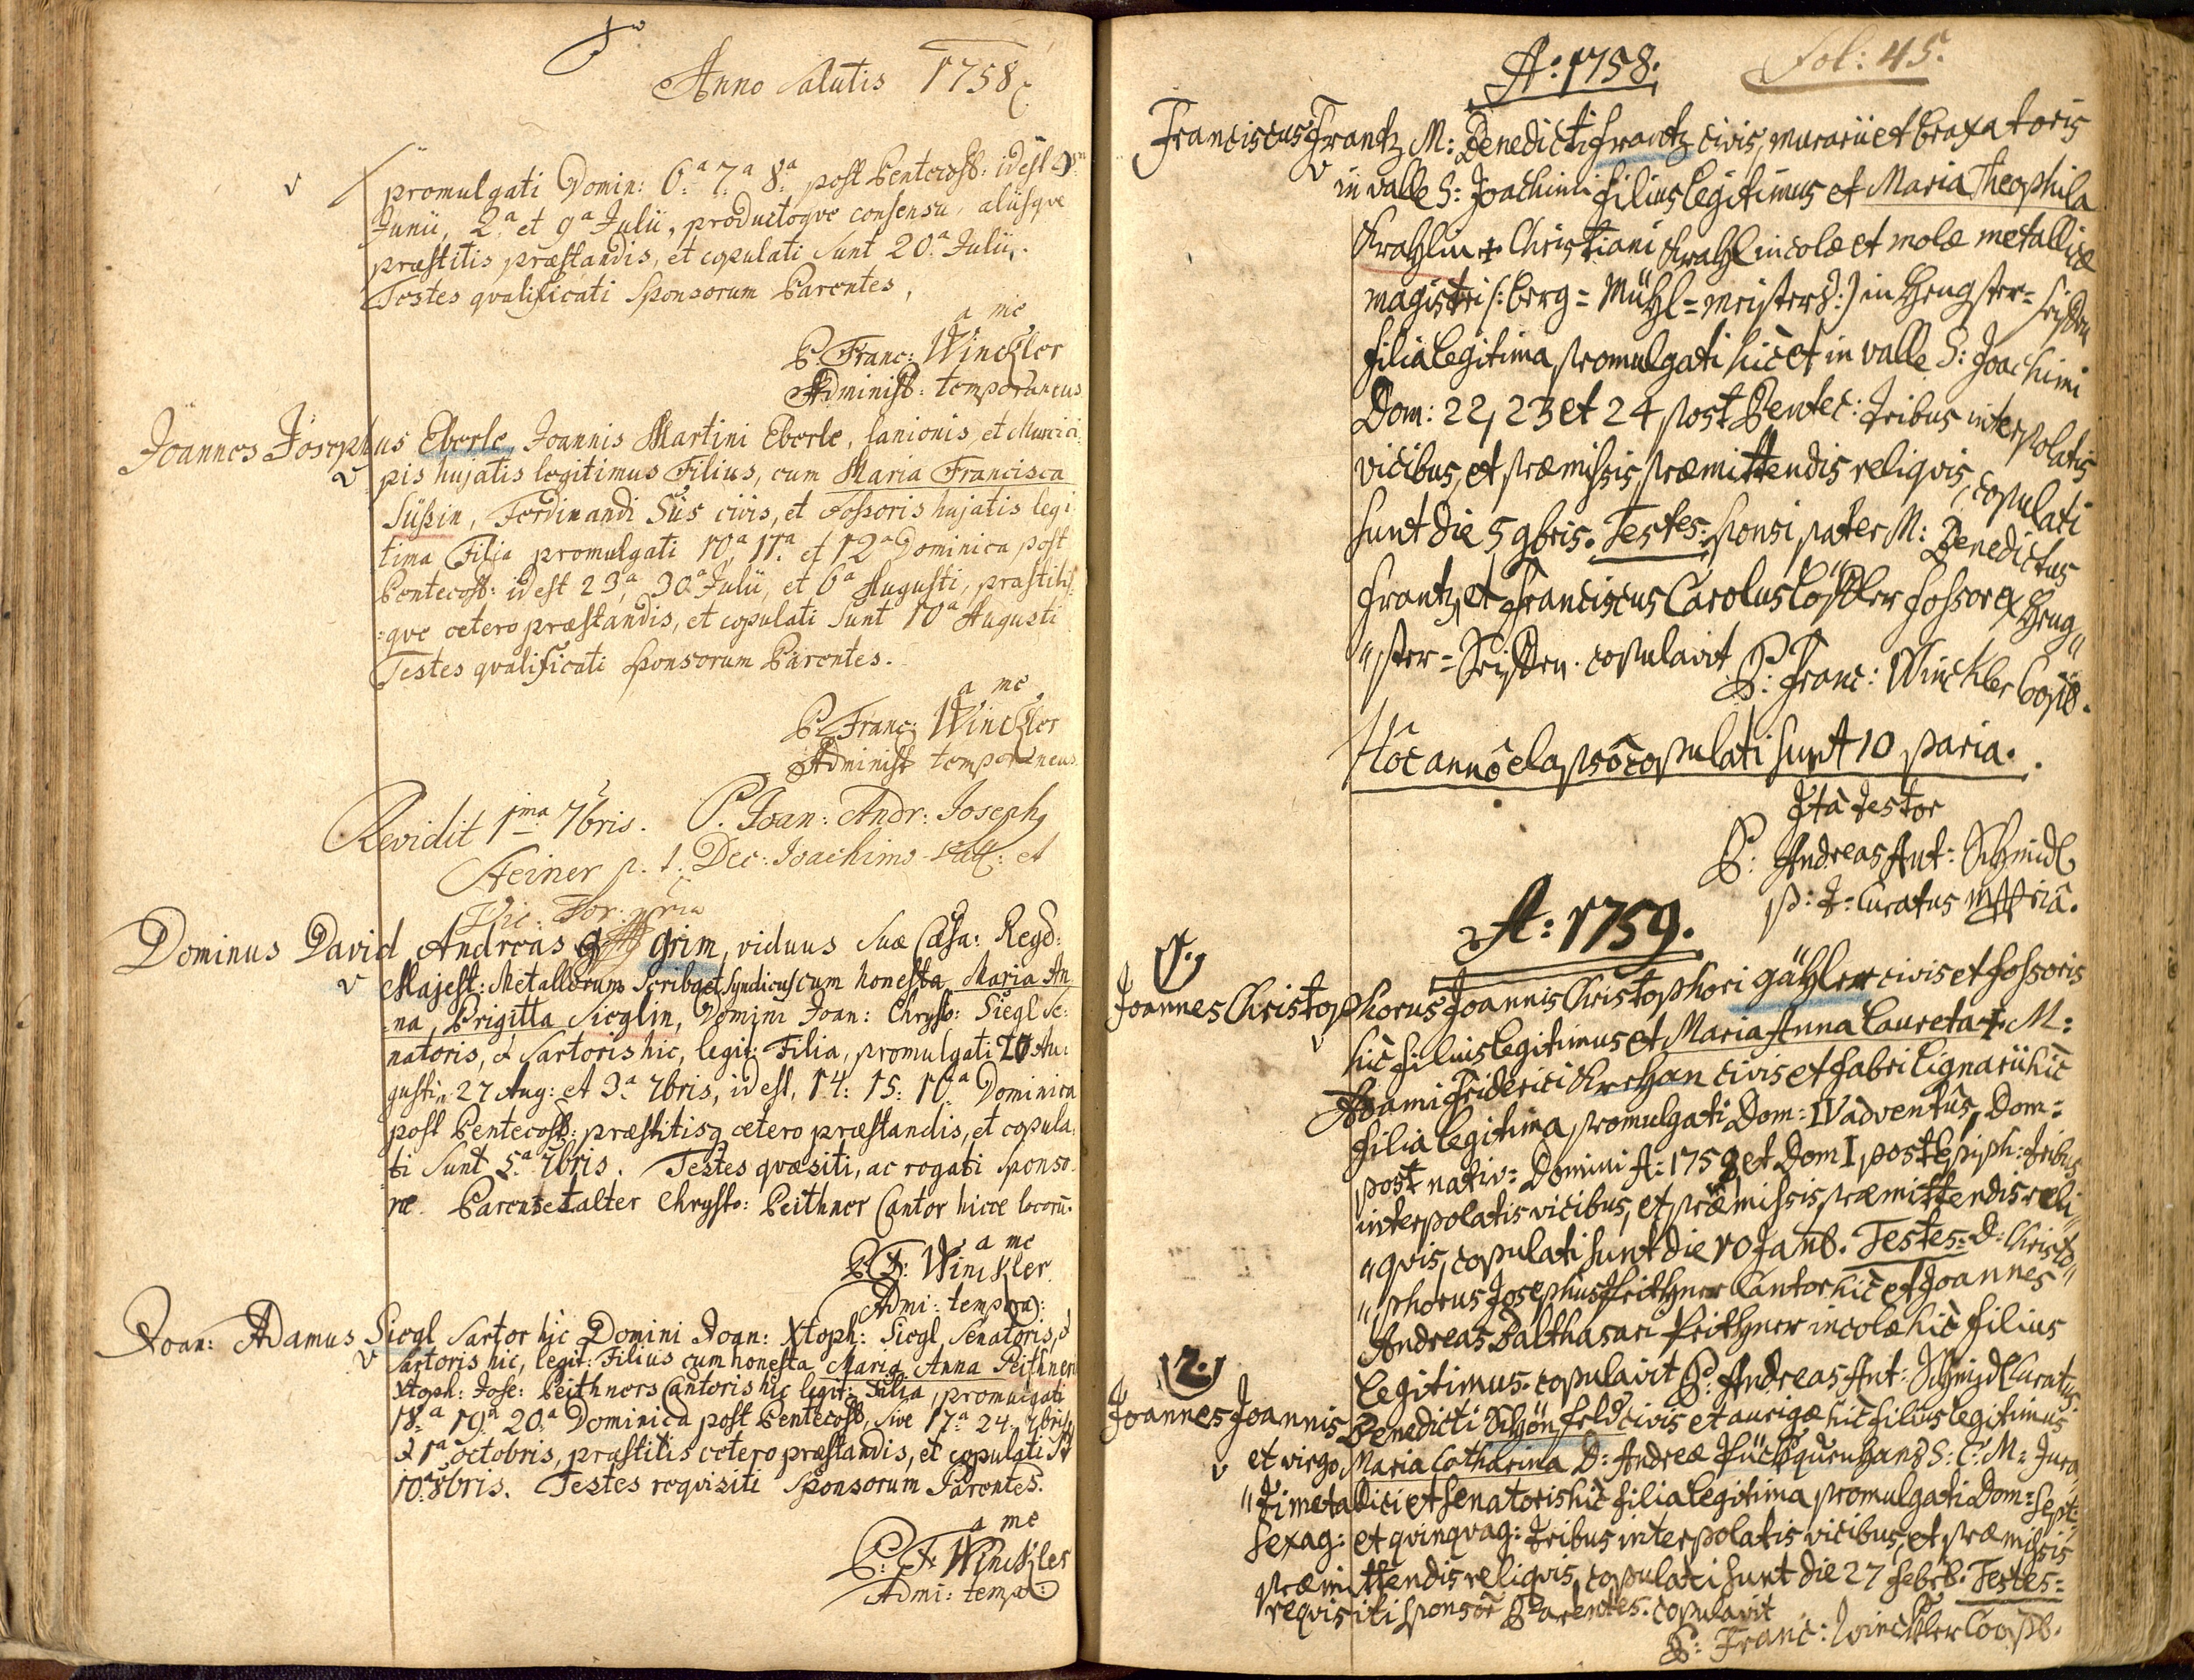 Anno Salutis 1758
promulgati Domin: 6.a 7.a 8.a post Pentecost: id est
Junii, 2.a et 9.a Julii, productoqve consensu, aliisqve
præstitis præstandis, et copulati sunt 20.a Julii.
Testes qvalificati Sponsorum Parentes,
a me
P. Franc: Winckler
Administ: temporaneus
Joannes Josephus Eberle, Joannis Martini Eberle, lanionis, et Munici
pis hujatis legitimus Filius, cum Maria Francisca
Süßin, Ferdinandi Süs civis, et Fossoris hujatis legi
tima Filia promulgati 10.a 11.a et 12.a Dominica post
Pentecost: id est 23.a, 30.a Julii, et 6.a Augusti, præstitis
:qve cetero præstandis, et copulati sunt 10.a Augusti
Testes qvalificati Sponsorum Parentes.
a me
P. Franc: Winckler
Administ temporaneus
Revidit 1ma 7bris. P. Joan: Andr: Joseph
Heiner p. t. Dec: Joachimo- et
Vic: For: mria
Dominus David Andreas grim, viduus Suæ Cæsa: Regiæ:
Majest: Metallorum Scriba et Syndicus cum honesta Maria An
:na, Brigitta Sieglin, Domini Joan: Chrysto: Siegl Se:
natoris, et Sartoris hic, legit: Filia, promulgati 20 Au:
gusti, 27 Aug: et 3.a 7bris, id est, 14: 15: 16.a Dominica
post Pentecost: præstitisq cetero præstandis, et copula:
ti sunt 5.a 7bris. Testes qvæsiti, ac rogati Sponso
ræ Parens et alter Chrysto: Peithner Cantor hicce locorū.
a me
P. F: Winckler
Admi: tempora:
Joan: Adamus Siegl Sartor hic Domini Joan: Xtoph: Siegl Senatoris, et
Sartoris hic, legit: Filius cum honesta Maria Anna Peithnerin
Xtoph: Jose: Peithners Cantoris hic legit: Filia, promulgati
18.a 19.a 20.a Dominica post Pentecost, sive 17.a 24. 7bris,
et 1.a octobris, præstitis cetero præstandis, et copulati st
10.a 8bris. Testes reqvisiti Sponsorum Parentes.
a me
P: F: Winckler
Admi: tempo:
A: 1758. Fol: 45.
Franciscus Frantz M: Benedicti Frantz civis, murarii et braxatoris
in valle S: Joachimi filius legitimus et Maria Theophila
Krahlin + Christiani Krahl incolæ et molæ metallicæ
magistri /: berg=Mühl=meisters :/ in Hengster=
filia legitima promulgati hic et in valle S: Joachimi
Dom: 22, 23 et 24 post Pentec: tribus interpolatis
vicibus, et præmissis præmittendis reliqvis, copulati
sunt die 5 9bris. Testes: sponsi pater M: Benedictus
Frantz, et Franciscus Carolus fossor ex Heng"
"ster= copulavit
P: Franc: Winckler Coop.
Hôc annô elapsô copulati sunt 10 paria.
Ita testor
P: Andreas Ant: Schmidl
p: t: Curatus mppria.
A: 1759.
1.
Joannes Christophorus Joannis Christophori gähler civis et fossoris
hic filius legitimus et Maria Anna Laureta + M:
Adami Friderici civis et fabri lignarii hic
filia legitima promulgati Dom: IV adventûs, Dom:
post nativ: Domini A: 1758 et Dom I post Epiph: tribus
interpolatis vicibus, et præmissis præmittendis reli"
"qvis, copulati sunt die 10 Janu. Testes: D: Christo"
"phorus Josephus Peithner Cantor hic et Joannes
Andreas Balthasari Peithner incolæ hic filius
legitimus. copulavit P: Andreas Ant: Schmidl Curatus
2.
Joannes Joannis Benedicti Schönfeld civis et aurigæ hic filius legitimus
et virgo Maria Catharina D: Andreæ S: C: M: Jura
"ti metallici et senatoris hic filia legitima promulgati Dom: Sept:
Sexag: et qvinqvag: tribus interpolatis vicibus, et præmissis
præmittendis reliqvis, copulati sunt die 27 Febr. Testes=
reqvisiti sponsor Parentes. copulavit
P: Franc: Winckler Coop.